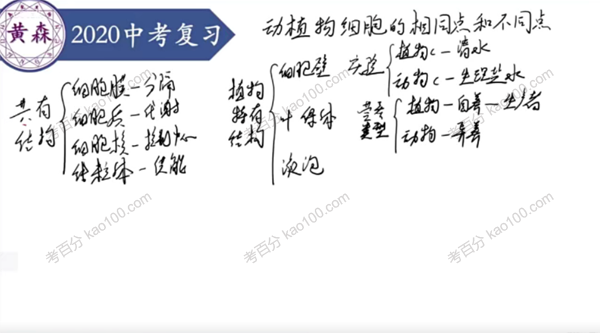 黄森
2020中考复习
动植物细胞的相同点和不同点
共有结构
细胞膜-分隔
细胞质-代谢
细胞核-控制中心
线粒体-供能
植物特有结构
细胞壁
叶绿体
液泡
实验
植物c-清水
动物c-生理盐水
营养类型
植物-自养-生产者
动物-异养
考百分 kao100.com
考百分 kao100.com
考百分 kao100.com
考百分 kao100.com
考百分 kao100.com
考百分 kao100.com